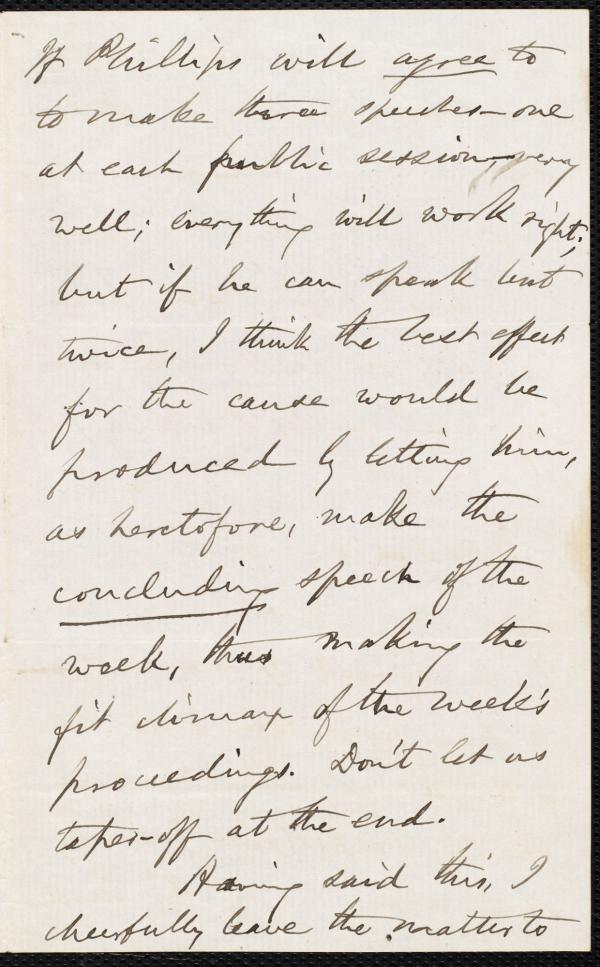 If Phillips will agree to
to make three speeches—one
at each public session—very
well; everything will work right;
but if he can speak but
twice, I think the best effect
for the cause would be
produced by letting him,
as heretofore, make the
concluding speech of the
week, thus making the
fit climax of the week's
proceedings. Don't let us
taper-off at the end.
Having said this, I
cheerfully leave the matter to